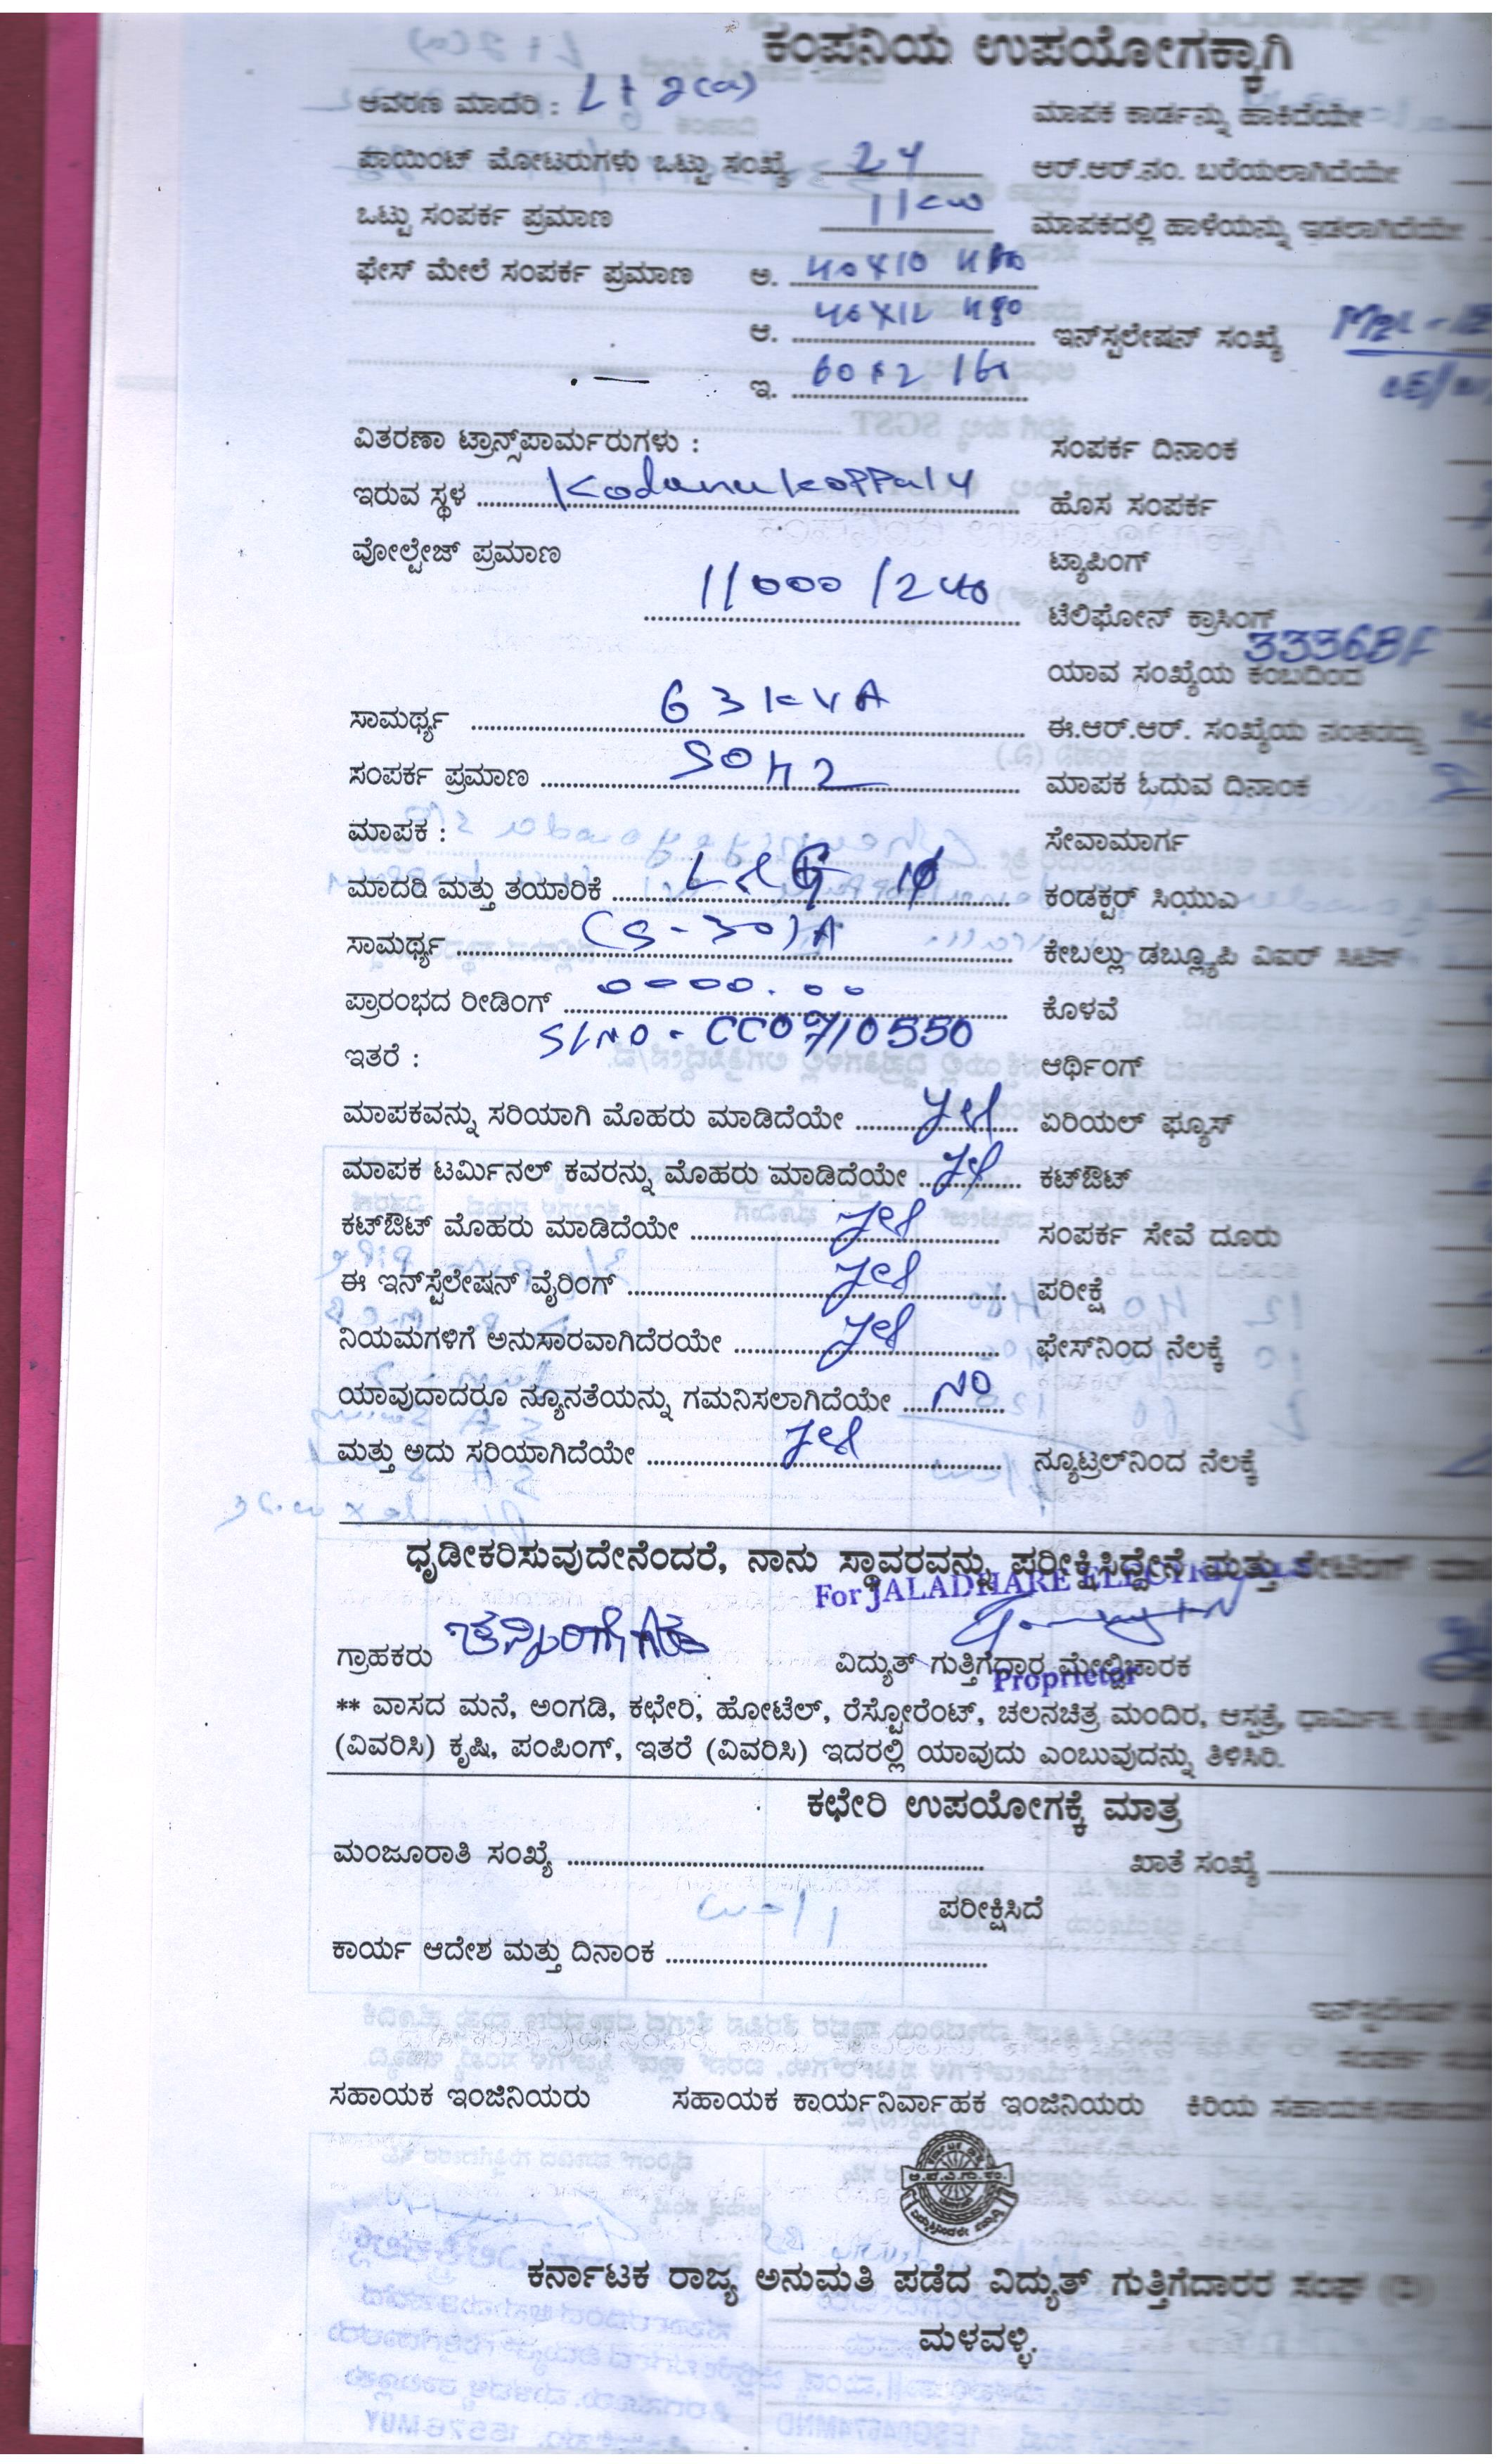 ಕಂಪನಿಯ ಉಪಯೋಗಕ್ಕಾಗಿ
ಆವರಣ ಮಾದರಿ : Lt 2(a) ಮಾಪಕ ಕಾರ್ಡನ್ನು ಹಾಕಿದೆಯೇ
ಪಾಯಿಂಟ್ ಮೋಟರುಗಳು ಒಟ್ಟು ಸಂಖ್ಯೆ 24 ಆರ್.ಆರ್.ನಂ. ಬರೆಯಲಾಗಿದೆಯೇ
ಒಟ್ಟು ಸಂಪರ್ಕ ಪ್ರಮಾಣ 1 kw ಮಾಪಕದಲ್ಲಿ ಹಾಳೆಯನ್ನು ಇಡಲಾಗಿದೆಯೇ
ಫೇಸ್ ಮೇಲೆ ಸಂಪರ್ಕ ಪ್ರಮಾಣ ಅ. 40x10
ಆ. 40x12 480 ಇನ್‌ಸ್ಟಲೇಷನ್ ಸಂಖ್ಯೆ
ಇ. 60x2
ವಿತರಣಾ ಟ್ರಾನ್ಸ್‌ಪಾರ್ಮರುಗಳು : ಸಂಪರ್ಕ ದಿನಾಂಕ
ಇರುವ ಸ್ಥಳ Kodanukoppaly ಹೊಸ ಸಂಪರ್ಕ
ವೋಲ್ಟೇಜ್ ಪ್ರಮಾಣ ಟ್ಯಾಪಿಂಗ್
11000/240 ಟೆಲಿಫೋನ್ ಕ್ರಾಸಿಂಗ್
ಯಾವ ಸಂಖ್ಯೆಯ ಕಂಬದಿಂದ
ಸಾಮರ್ಥ್ಯ 63 KVA ಈ.ಆರ್.ಆರ್. ಸಂಖ್ಯೆಯ ನಂತರದ್ದು
ಸಂಪರ್ಕ ಪ್ರಮಾಣ 50HZ ಮಾಪಕ ಓದುವ ದಿನಾಂಕ
ಮಾಪಕ : ಸೇವಾಮಾರ್ಗ
ಮಾದರಿ ಮತ್ತು ತಯಾರಿಕೆ L&G 1φ ಕಂಡಕ್ಟರ್ ಸಿಯುಎ
ಸಾಮರ್ಥ್ಯ (5-30)A ಕೇಬಲ್ಲು ಡಬ್ಲ್ಯೂಪಿ ವಿಐರ್
ಪ್ರಾರಂಭದ ರೀಡಿಂಗ್ 0000.00 ಕೊಳವೆ
ಇತರೆ : SLNO - CC0710550 ಆರ್ಥಿಂಗ್
ಮಾಪಕವನ್ನು ಸರಿಯಾಗಿ ಮೊಹರು ಮಾಡಿದೆಯೇ yes ಏರಿಯಲ್ ಫ್ಯೂಸ್
ಮಾಪಕ ಟರ್ಮಿನಲ್ ಕವರನ್ನು ಮೊಹರು ಮಾಡಿದೆಯೇ yes ಕಟ್‌ಔಟ್
ಕಟ್‌ಔಟ್ ಮೊಹರು ಮಾಡಿದೆಯೇ yes ಸಂಪರ್ಕ ಸೇವೆ ದೂರು
ಈ ಇನ್‌ಸ್ಟೆಲೇಷನ್ ವೈರಿಂಗ್ yes ಪರೀಕ್ಷೆ
ನಿಯಮಗಳಿಗೆ ಅನುಸಾರವಾಗಿದೆರಯೇ yes ಫೇಸ್‌ನಿಂದ ನೆಲಕ್ಕೆ
ಯಾವುದಾದರೂ ನ್ಯೂನತೆಯನ್ನು ಗಮನಿಸಲಾಗಿದೆಯೇ NO
ಮತ್ತು ಅದು ಸರಿಯಾಗಿದೆಯೇ yes ನ್ಯೂಟ್ರಲ್‌ನಿಂದ ನೆಲಕ್ಕೆ
ಧೃಡೀಕರಿಸುವುದೇನೆಂದರೆ, ನಾನು ಸ್ಥಾವರವನ್ನು ಪರೀಕ್ಷಿಸಿದ್ದೇನೆ ಮತ್ತು
For JALADHARE
ಗ್ರಾಹಕರು ವಿದ್ಯುತ್ ಗುತ್ತಿಗೆದಾರ ಮೇಲ್ವಿಚಾರಕ
Proprietor
** ವಾಸದ ಮನೆ, ಅಂಗಡಿ, ಕಛೇರಿ, ಹೋಟೆಲ್, ರೆಸ್ಟೋರೆಂಟ್, ಚಲನಚಿತ್ರ ಮಂದಿರ, ಆಸ್ಪತ್ರೆ,
(ವಿವರಿಸಿ) ಕೃಷಿ, ಪಂಪಿಂಗ್, ಇತರೆ (ವಿವರಿಸಿ) ಇದರಲ್ಲಿ ಯಾವುದು ಎಂಬುವುದನ್ನು ತಿಳಿಸಿರಿ.
ಕಛೇರಿ ಉಪಯೋಗಕ್ಕೆ ಮಾತ್ರ
ಮಂಜೂರಾತಿ ಸಂಖ್ಯೆ ಖಾತೆ ಸಂಖ್ಯೆ
ಪರೀಕ್ಷಿಸಿದೆ
ಕಾರ್ಯ ಆದೇಶ ಮತ್ತು ದಿನಾಂಕ
ಸಹಾಯಕ ಇಂಜಿನಿಯರು ಸಹಾಯಕ ಕಾರ್ಯನಿರ್ವಾಹಕ ಇಂಜಿನಿಯರು ಕಿರಿಯ
ಕರ್ನಾಟಕ ರಾಜ್ಯ ಅನುಮತಿ ಪಡೆದ ವಿದ್ಯುತ್ ಗುತ್ತಿಗೆದಾರರ ಸಂಘ
ಮಳವಳ್ಳಿ.